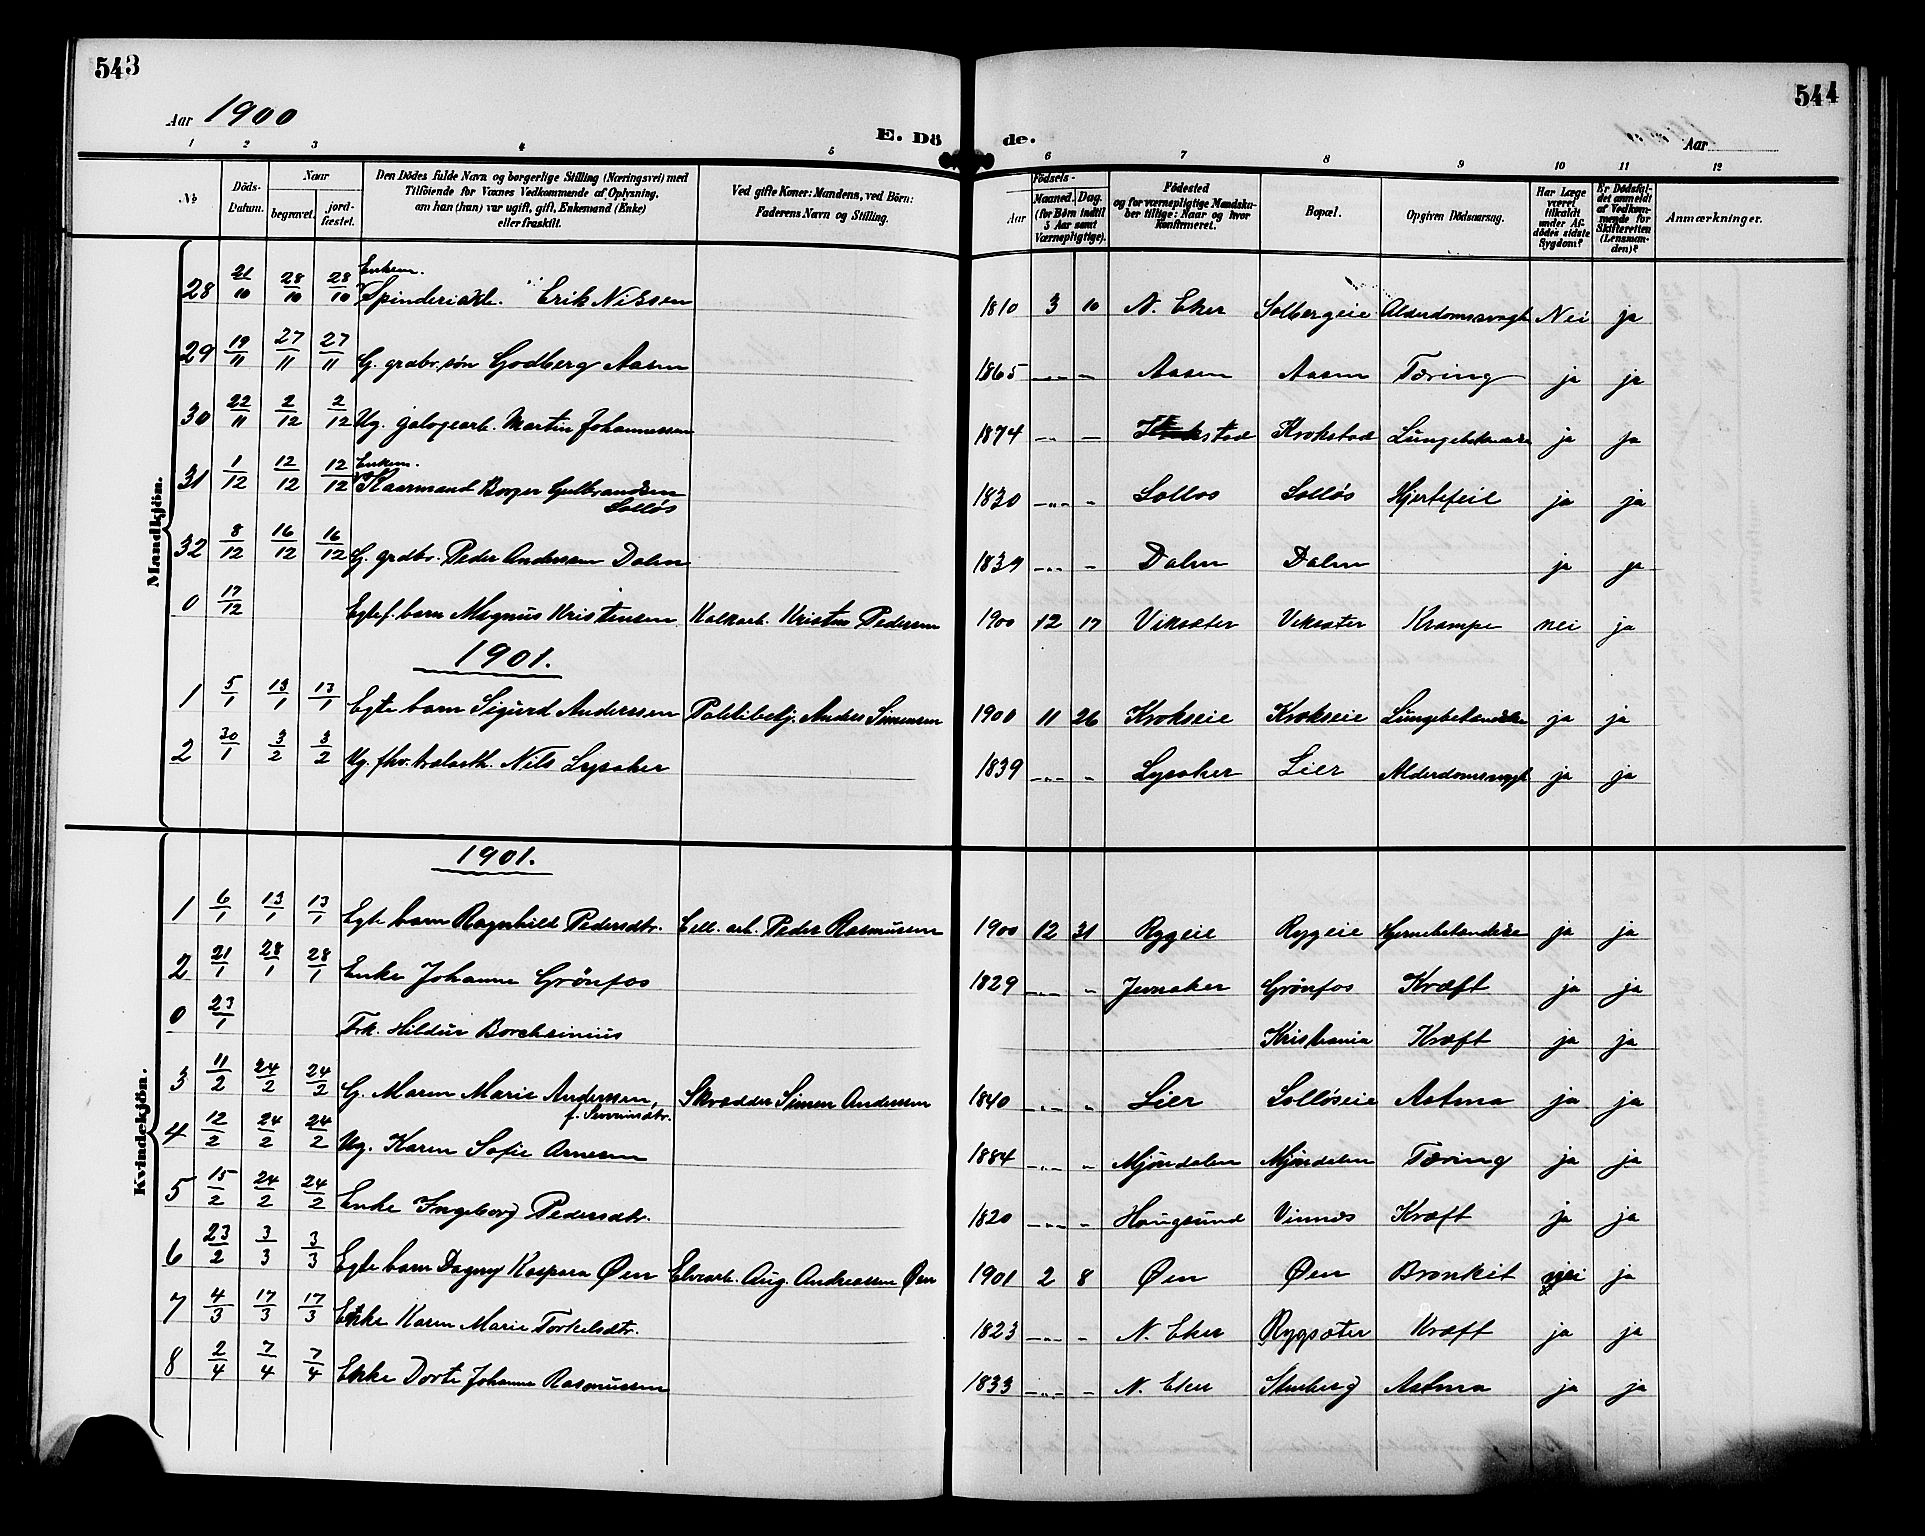 543
544
Aar 1900
E. Dö de.
Aar
1 2 3 4 5 6 7 8 9 10 11 12
№
Döds-Datum.
Naar
begravet.
jordfæstet.
Den Dödes fulde Navn og borgerlige Stilling (Næringsvei) med
Tilföiende for Voxnes Vedkommende af Oplysning,
om han (hun) var ugift, gift, Enkemand (Enke)
eller fraskilt.
Ved gifte Koner: Mandens, ved Börn:
Faderens Navn og Stilling.
Födsels-
Aar
Maaned. Dag.
(for Börn indtil
5 Aar samt
Værnepligtige).
Födested
og for værnepligtige Mandska-
ber tillige: Naar og hvor
Konfirmeret.
Bopæl.
Opgiven Dödsaarsag.
Har Læge
været
tilkaldt
under Af-
dödes sidste
Sygdom?
Er Dödsfal-
det anmeldt
af Vedkom-
mende for
Skifteretten
(Lensman-
den)?
Anmærkninger.
Mandkjön.
28 21/10 28/10 28/10 Enkem. Spinderiarb. Erik Nilssen 1810 3 10 N. Eker Solbergeie Alderdomssvagh Nei ja
29 19/11 27/11 27/11 G. grdbr. søn Godberg Aasen 1865 -"- - Aasen Aasen Tæring ja ja
30 22/11 2/12 2/12 Ug. galogearb. Martin Johannessen 1874 -"- - Krokstad Lungebetændelse ja ja
31 1/12 12/12 12/12 Enkem. Kaarmand Borger Gulbrandsen
Solløs 1830 -"- " Solløs Solløs Hjertefeil ja ja
32 8/12 16/12 16/12 G. grdbr. Peder Andersen Dalen 1839 -"- - Dalen Dalen ja ja
0 17/12 Egtef. barn Magnus Kristensen Kalkarb. Kristen Pedersen 1900 12 17 Viksæter Viksæter Krampe nei ja
1901.
1 5/1 13/1 13/1 Egte barn Sigurd Anderssen Politibetj. Anders Simensen 1900 11 26 Krokseie Krokseie Lungebetændelse ja ja
2 30/1 3/2 3/2 Ug. fhv. Nils Lysaker 1839 -"- " Lysaker Lier Alderdomssvagh ja ja
Kvindekjön.
1901.
1 6/1 13/1 13/1 Egte barn Ragnhild Pedersdtr. Cell. arb. Peder Rasmussen 1900 12 31 Rygeie Rygeie Hjernebetændelse ja ja
2 21/1 28/1 28/1 Enke Johanne Grönfos 1829 -"- " Jevnaker Grönfos Kræft ja ja
0 23/1 Frk. Hildur Borchsenius Kristiania Kræft ja ja
3 11/2 24/2 24/2 G. Maren Marie Anderssen, Skrædder Simen Anderssen 1840 -"- " Lier Solløseie Astma ja ja
4 12/2 24/2 24/2 Ug. Karen Sofie Arnesen 1884 -"- " Mjöndalen Mjöndalen Tæring ja ja
5 15/2 24/2 24/2 Enke Ingeborg Pedersdtr. 1820 -"- - Hougsund Vinnæs Kræft ja ja
6 23/2 3/3 3/3 Egte barn Dagny Kaspara Øen Elvearb. Aug. Andreassen Øen 1901 2 8 Øen Øen Bronkit nei ja
7 4/3 17/3 17/3 Enke Karen Marie Torkelsdtr. 1823 -"- - N. Eker Rygsæter Kræft ja ja
8 2/4 7/4 7/4 Enke Dorte Johanne Rasmussen 1833 -"- - N. Eker Stenberg Astma ja ja